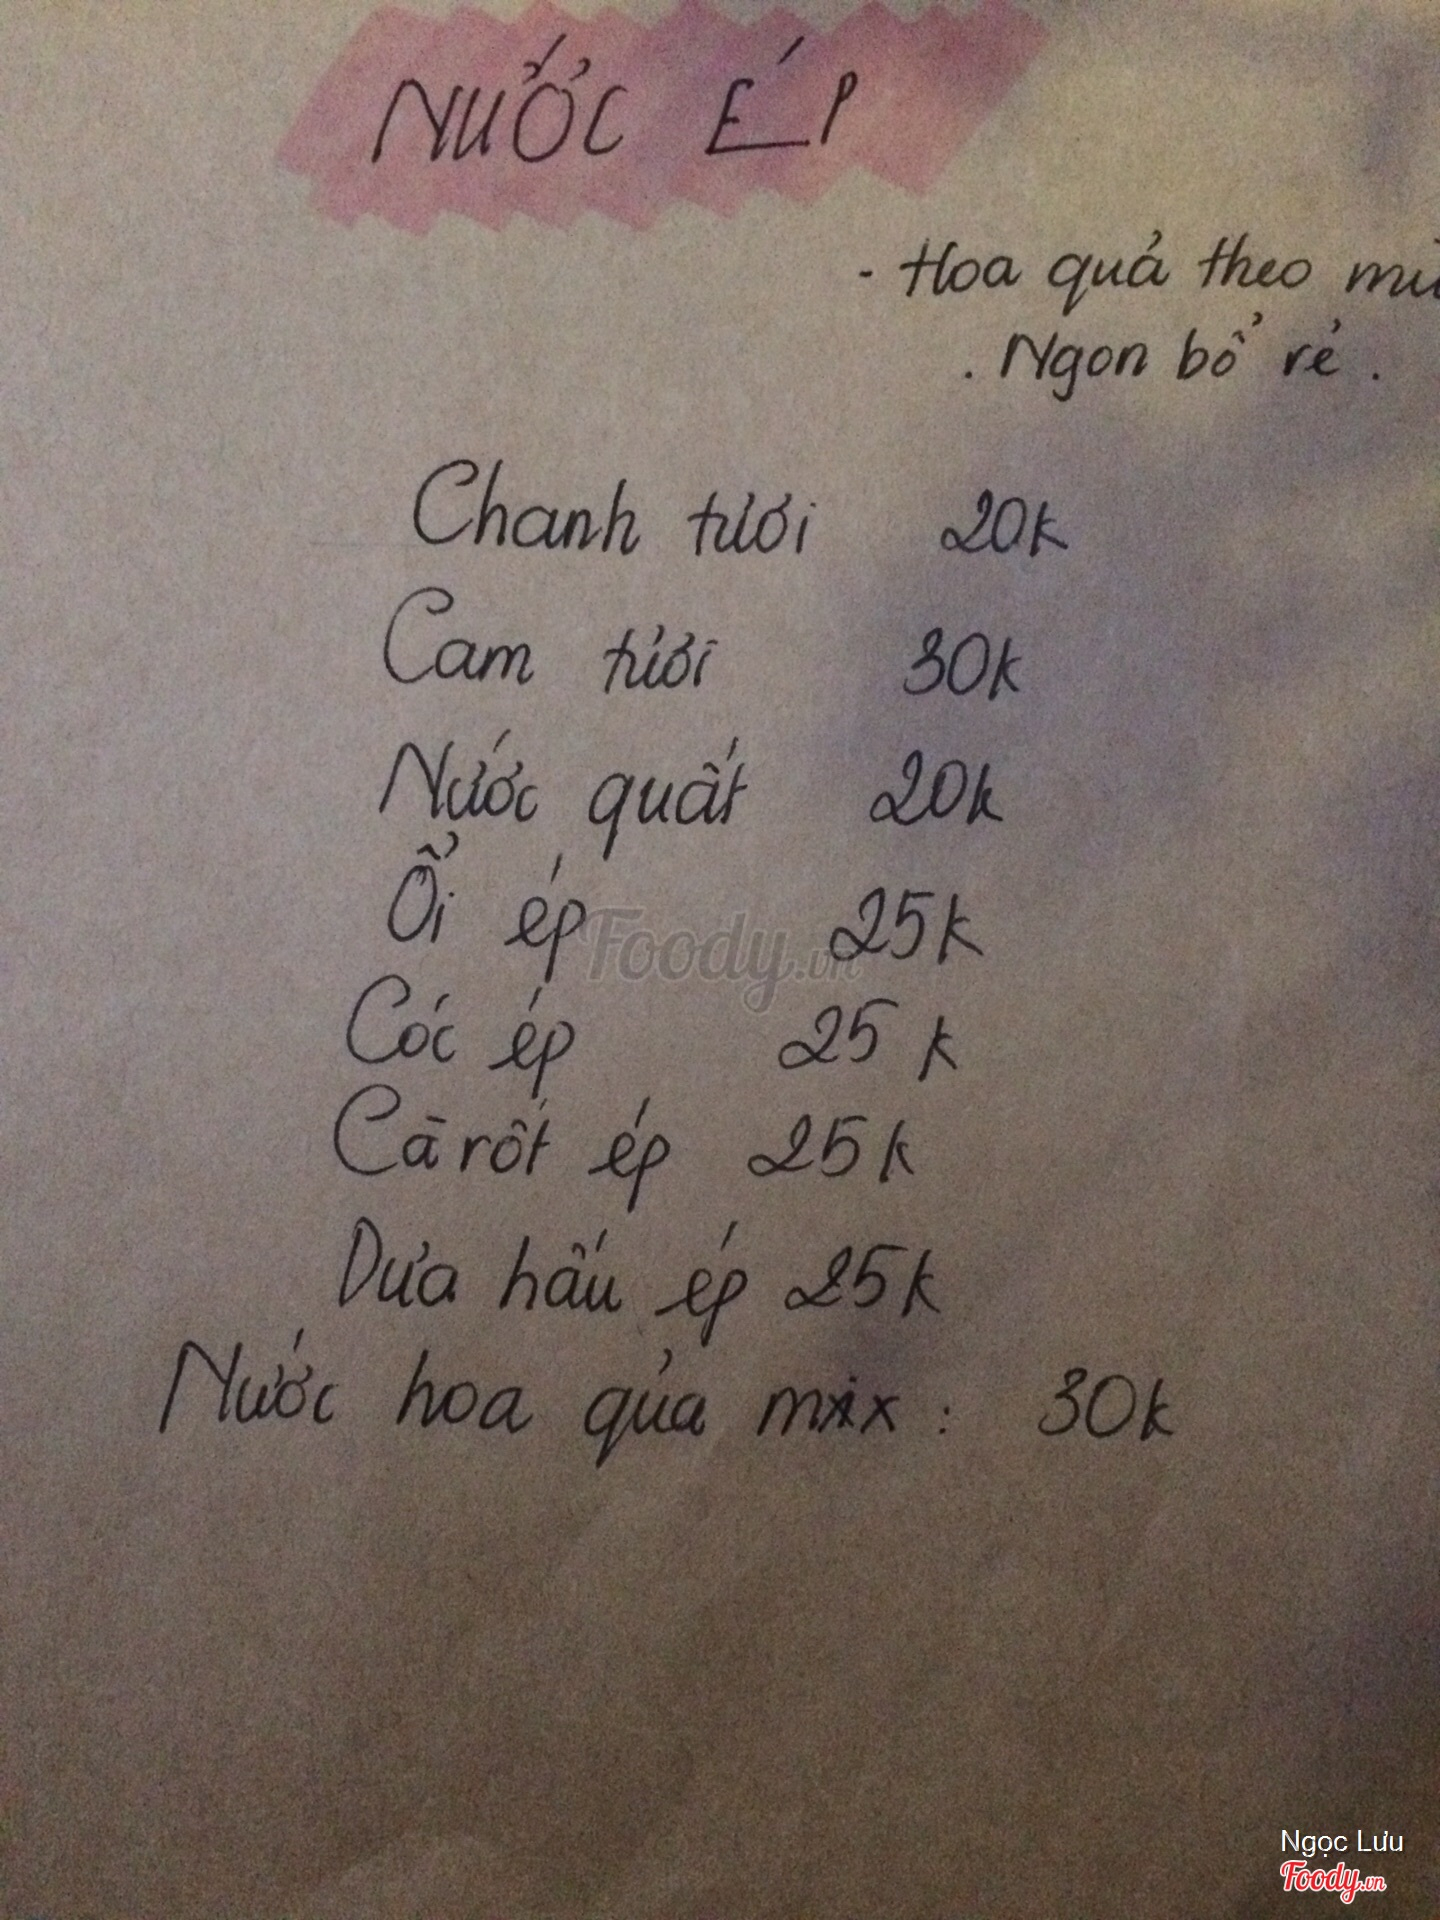 NƯỚC ÉP
- Hoa quả theo
. Ngon bổ rẻ .
Chanh tươi 20k
Cam tươi 30k
Nước quất 20k
Ổi ép 25k
Cóc ép 25 k
Cà rốt ép 25k
Dưa hấu ép 25k
Nước hoa quả mix : 30k
Foody.vn
Ngọc Lưu
Foody.vn